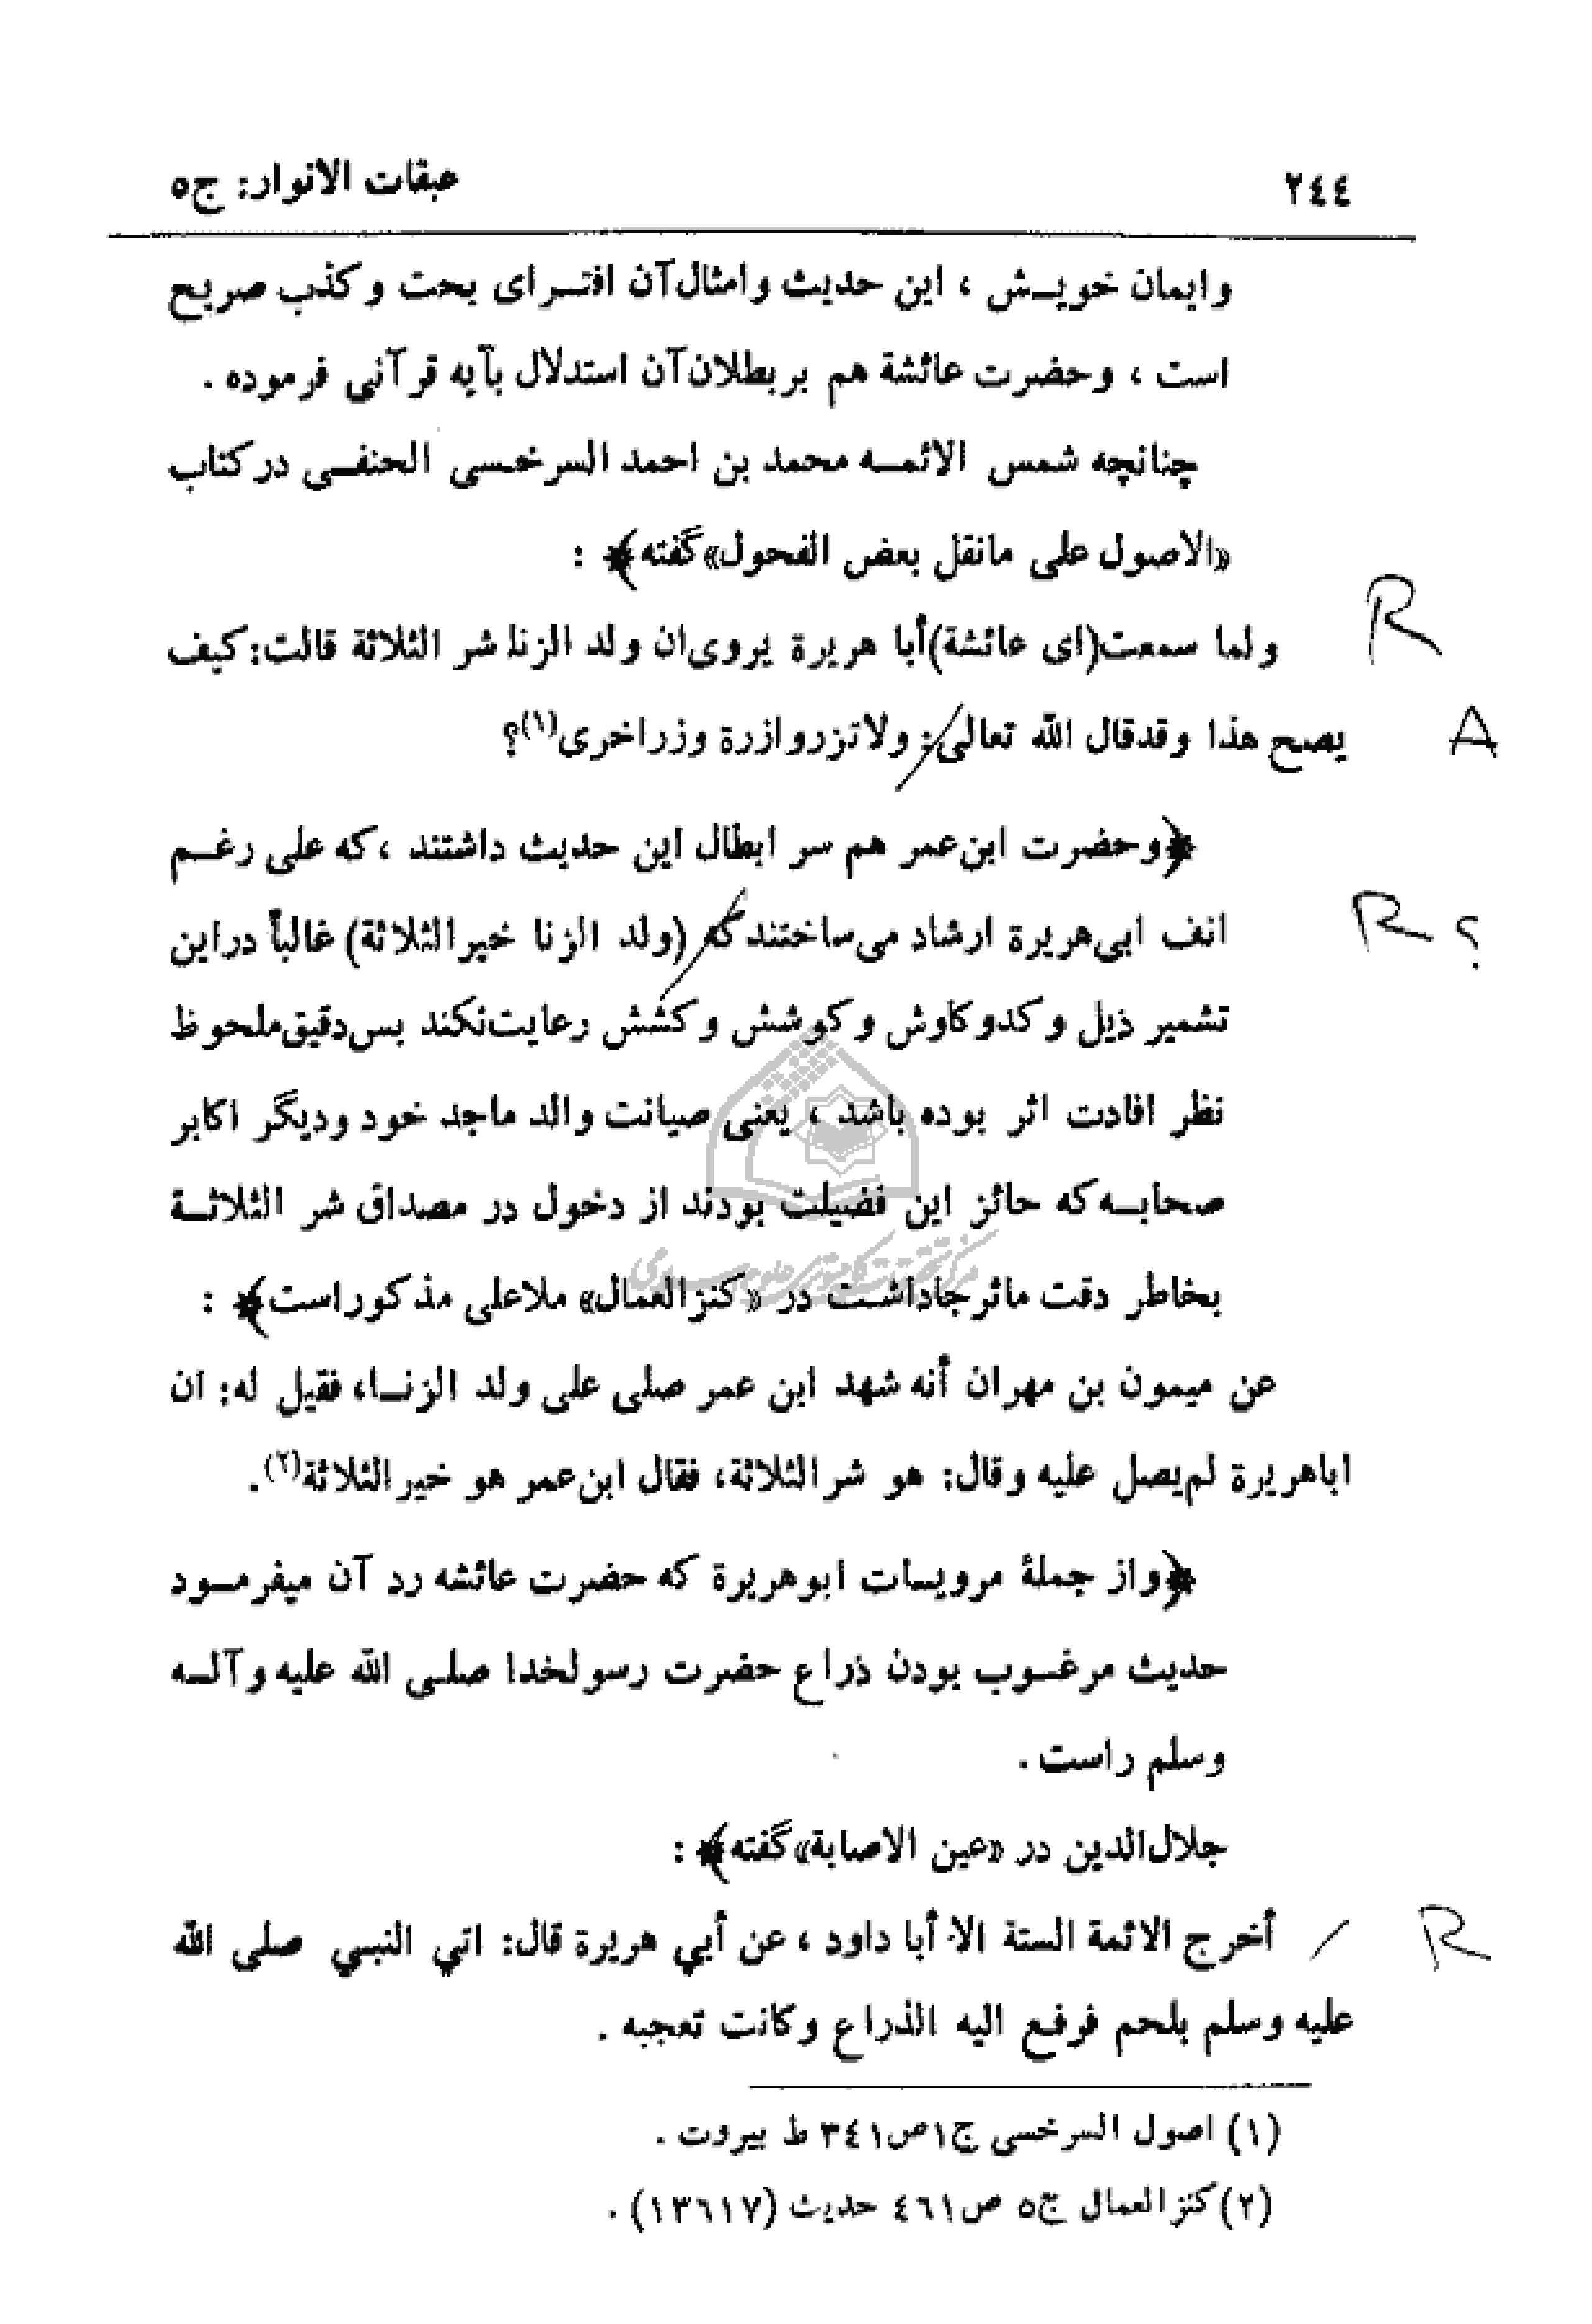 ٢٤٤
عبقات الانوار: ج٥
وايمان خويـش ، اين حديث وامثال‌آن افتـراى بحت و كذب صريح
است ، وحضرت عائشة هم بر بطلان‌آن استدلال بآيه قرآنى فرموده .
چنانچه شمس الائمـه محمد بن احمد السرخسى الحنفـى در كتاب
«الاصول على مانقل بعض الفحول» گفته﴾ :
ولما سمعت(اى عائشة)أبا هريرة يروى‌ان ولد الزنا شر الثلاثة قالت: كيف
R
يصح هذا وقدقال الله تعالى: ولاتزروازرة وزراخرى(١)؟
A
﴿وحضرت ابن‌عمر هم سر ابطال اين حديث داشتند ، كه على رغـم
انف ابى‌هريرة ارشاد مى‌ساختند كه (ولد الزنا خيرالثلاثة) غالباً دراين
R ؟
تشمير ذيل و كدو كاوش و كوشش و كشش رعايت‌نكند بس‌دقيق‌ملحوظ
نظر افادت اثر بوده باشد ، يعنى صيانت والد ماجد خود وديگر اكابر
صحابـه كه حائز اين فضيلت بودند از دخول در مصداق شر الثلاثـة
بخاطر دقت ماثر جاداشـت در «كنزالعمال» ملاعلى مذكوراست﴾ :
عن ميمون بن مهران أنه شهد ابن عمر صلى على ولد الزنـا، فقيل له: ان
اباهريرة لم‌يصل عليه وقال: هو شرالثلاثة، فقال ابن‌عمر هو خيرالثلاثة(٢).
﴿واز جملۀ مرويـات ابوهريرة كه حضرت عائشه رد آن ميفرمـود
حديث مرغـوب بودن ذراع حضرت رسولخدا صلـى الله عليه وآلـه
وسلم راست .
جلال‌الدين در «عين الاصابة» گفته﴾ :
أخرج الائمة الستة الا أبا داود ، عن أبي هريرة قال: اتي النبـي صلى الله
/ R
عليه وسلم بلحم فرفع اليه الذراع وكانت تعجبه .
(١) اصول السرخسى ج١ص٣٤١ ط بيروت .
(٢) كنزالعمال ج٥ ص٤٦١ حديث (١٣٦١٧) .